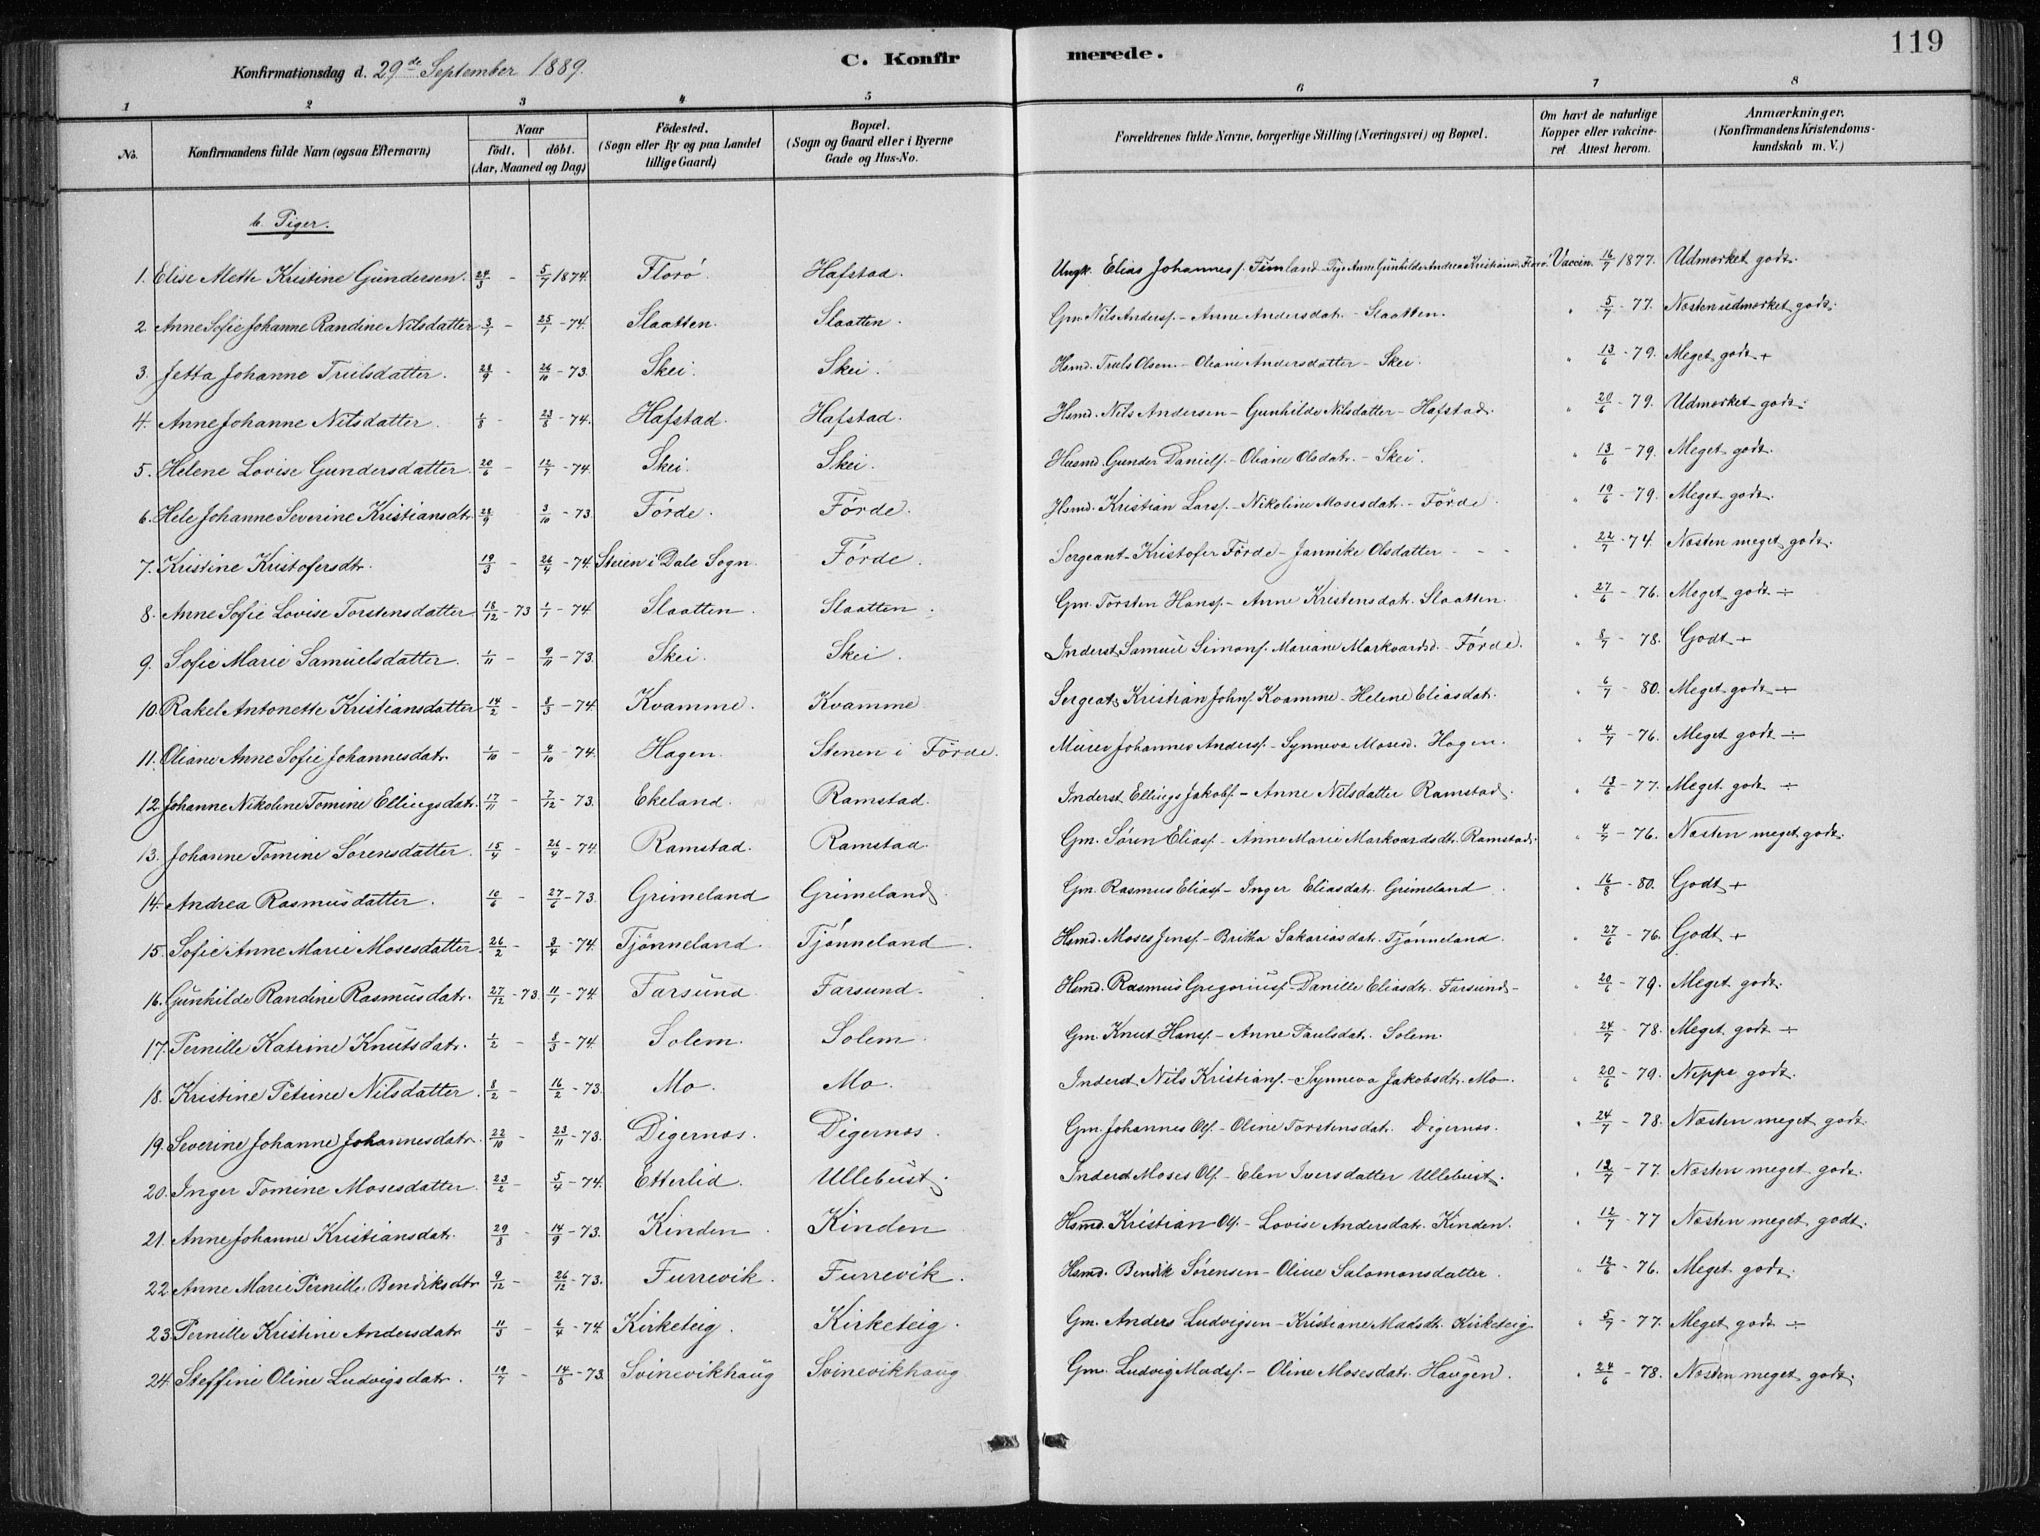 119
Konfirmationsdag d. 29de September 1889.
C. Konfirmerede.
1 2 3 4 5 6 7 8
No.
Konfirmandens fulde Navn (ogsaa Efternavn)
Naar født. døbt. (Aar, Maaned og Dag)
Fødested. (Sogn eller By og paa Landet tillige Gaard)
Bopæl. (Sogn og Gaard eller i Byerne Gade og Hus-No.
Forældrenes fulde Navne, borgerlige Stilling (Næringsvei) og Bopæl.
Om havt de naturlige Kopper eller vaccineret Attest herom.
Anmærkninger. (Konfirmandens Kristendomskundskab m. V.)
b. Piger.
1. Elise Mette Kristine Gundersen. 24/3 - 5/7 1874. Florø. Hafstad. Ungk. Elias Johannesf. Timland - Pige Anne Gunhilde Andrea Kristiansd. Florø. Vaccin. 16/7 1877. Udmærket godt.
2. Anne Sofie Johanne Randine Nilsdatter 3/7 - 25/7 - 74. Slaatten. Slaatten. Gm. Nils Andersf. - Anne Andersdatr. - Slaatten. " 5/7 - 77. Næsten udmærket godt.
3. Jetta Johanne Trulsdatter. 28/9 - 26/10 - 73. Skei. Skei. Hsmd. Truls Olsen. - Oliane Andersdatter - Skei. " 13/6 - 79. Meget godt +
4. Anne Johanne Nilsdatter. 1/8 - 23/8 - 74. Hafstad. Hafstad. Hsmd. Nils Andersen - Gunhilde Nilsdatter - Hafstad. " 20/6 - 79. Udmærket godt.
5. Helene Lovise Gundersdatter. 20/6 - 12/7 - 74. Skei. Skei. Husmd. Gunder Danielf. - Oliane Olsdatr. - Skei. " 13/6 - 79. Meget godt.
6. Hele Johanne Severine Kristiansdtr. 28/9 3/10 - 73. Førde. Førde. Hsmd. Kristian Larsf. - Nikoline Mosesdatr. - Førde. " 19/6 - 79. Meget godt.
7. Kristine Kristofersdtr. 19/3 - 26/4 - 74. Steien i Dale Sogn. Førde. Sergeant - Kristofer Førde - Jannike Olsdatter - - - " 22/7 - 74. Næsten meget godt.
8. Anne Sofie Lovise Torstensdatter 18/12 - 73 1/1 - 74 Slaatten. Slaatten. Gm. Torsten Hansf. - Anne Kristensdatr. Slaatten. " 27/6 - 76. Meget godt ÷
9. Sofie Marie Samuelsdatter. 1/11 - 9/11 - 73. Skei. Skei. Inderst Samuel Simonf. Mariane Markvardsd. - Førde. " 8/7 - 78. Godt +
10. Rakel Antonette Kristiansdatter 14/2 - 8/3 - 74. Kvamme. Kvamme. Sergeat. Kristian Johnf. Kvamme - Helene Eliasdatr. " 6/7 - 80. Meget godt ÷
11. Oliane Anne Sofie Johannesdatr. 1/10 - 4/10 - 74. Hagen. Stenen i Førde. Murer Johannes Andersf. - Synneva Mosesd. Hagen. " 4/7 - 76. Meget godt ÷
12. Johanne Nikoline Tomine Ellingsdatr. 17/11 - 7/12 - 73. Ekeland. Ramstad. Inderst Ellings Jakobf. - Anne Nilsdatter Ramstad. " 13/6 - 77. Meget godt ÷
13. Johanne Tomine Sørensdatter. 15/4 - 26/4 - 74. Ramstad. Ramstad. Gm. Søren Eliasf. - Anne Marie Markvardsdtr. Ramstad. " 4/7 - 76. Næsten meget godt.
14. Andrea Rasmusdatter. 10/6 - 27/6 - 73. Grimeland Grimeland. Gm. Rasmus Eliasf - Inger Eliasdatr. Grimeland. " 16/8 - 80. Godt +
15. Sofie Anne Marie Mosesdatter. 26/2 - 3/4 - 74. Tjønneland. Tjønneland. Hsmd. Moses Jensf. - Britha Sakariasdatr. Tjønneland. " 27/6 - 76. Godt +
16. Gunhilde Randine Rasmusdatr. 27/12 - 73. 11/1 - 74. Farsund. Farsund. Hsmd. Rasmus Gregoriusf. - Danille Eliasdtr. Farsund - " 20/6 - 79. Meget godt.
17. Pernille Katrine Knutsdatr. 1/2 - 8/3 - 74. Solem. Solem. Gm. Knut Hansf. - Anne Paulsdatr. Solem. " 24/7 - 78. Meget godt ÷
18. Kristine Petrine Nilsdatter. 8/2 - 16/2 - 73. Mo. Mo. Inderst Nils Kristianf. - Synneva Jakobsdtr. Mo. " 20/6 - 79. Neppe godt.
19. Severine Johanne Johannesdatr. 22/10 - 23/11 - 73. Digernæs. Digernæs. Gm. Johannes Olf. - Oline Torstensdatr. Digernæs. " 24/7 - 78. Næsten meget godt.
20. Inger Tomine Mosesdatter. 23/2 - 5/4 - 74. Etterlid. Ullebust. Inderst Moses Olf. - Elen Iversdatter Ullebust. " 12/7 - 77. Næsten meget godt.
21. Anne Johanne Kristiansdatr. 29/8 - 14/9 - 73. Kinden. Kinden Hsmd. Kristian Olf. - Lovise Andersdatr. Kinden. " 12/7 - 77 Næsten meget godt.
22. Anne Marie Pernille Bendiksdtr. 9/12 - 26/12 - 73. Furrevik. Furrevik. Hsmd. Bendik Sørensen - Oline Salomonsdatter. " 12/6 - 76. Meget godt.
23. Pernille Kristine Andersdatr 11/3 - 6/4 - 74. Kirketeig. Kirketeig. Gm. Anders Ludvigsen - Kristiane Madsdtr. Kirketeig. " 5/7 - 77. Meget godt ÷
24. Steffine Oline Ludvigsdatr. 19/7 - 14/8 - 73. Svinevikhaug Svinevikhaug Gm. Ludvig Madsf. - Oline Mosesdatr. Haugen. " 24/6 - 78. Næsten meget godt.